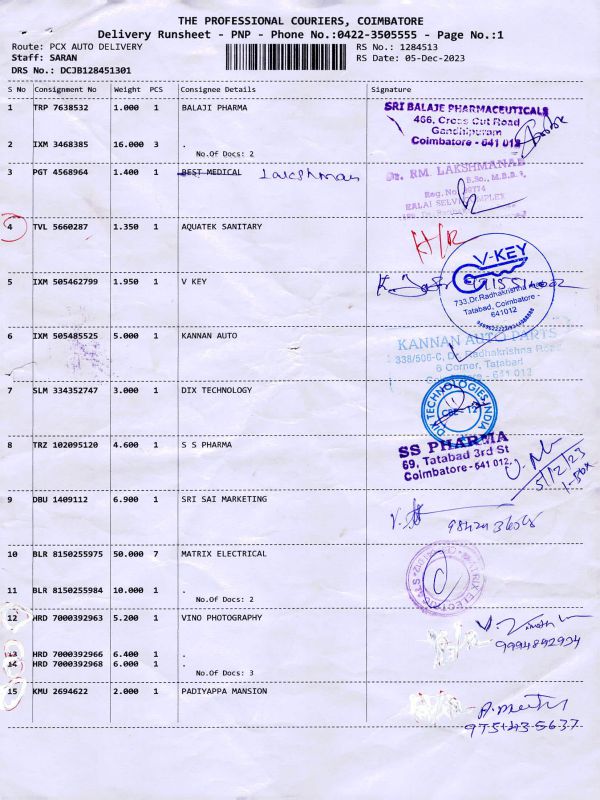 THE PROFESSIONAL COURIERS, COIMBATORE
Delivery Runsheet - PNP - Phone No.:0422-3505555 - Page No.:1
Route: PCX AUTO DELIVERY
RS No.: 1284513
Staff: SARAN
RS Date: 05-Dec-2023
DRS No.: DCJB128451301
S No Consignment No Weight PCS Consignee Details Signature
1 TRP 7638532 1.000 1 BALAJI PHARMA
SRI BALAJE PHARMACEUTICALS
466, Cross Cut Road
Gandhipuram
Coimbatore - 641 012
2 IXM 3468385 16.000 3 .
No.Of Docs: 2
3 PGT 4568964 1.400 1 BEST MEDICAL Lakshman
Dr. RM. LAKSHMANAN
B.Sc., M.B.B.S.
Reg. No.
4 TVL 5660287 1.350 1 AQUATEK SANITARY
V-KEY
733, Dr.Radhakrishna
Tatabad, Coimbatore -
641012
5 IXM 505462799 1.950 1 V KEY
6 IXM 505485525 5.000 1 KANNAN AUTO
KANNAN AUTO PARTS
338/506-C, Dr. Radhakrishna Road
6 Corner, Tatabad
Coimbatore - 641 012
7 SLM 334352747 3.000 1 DIX TECHNOLOGY
DIX TECHNOLOGIES INDIA
CBE - 12
8 TRZ 102095120 4.600 1 S S PHARMA
SS PHARMA
69, Tatabad 3rd St
Coimbatore - 641 012.
5/12/23
9 DBU 1409112 6.900 1 SRI SAI MARKETING
10 BLR 8150255975 50.000 7 MATRIX ELECTRICAL
MATRIX ELECTRICALS
11 BLR 8150255984 10.000 1 .
No.Of Docs: 2
12 HRD 7000392963 5.200 1 VINO PHOTOGRAPHY
9994892934
13 HRD 7000392966 6.400 1 .
14 HRD 7000392968 6.000 1 .
No.Of Docs: 3
15 KMU 2694622 2.000 1 PADIYAPPA MANSION
975143-5637